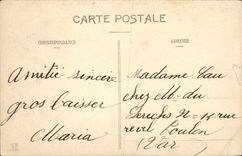 CARTE POSTALE
CORRESPONDANCE
ADRESSE
Amitié sincère
gros baiser
Maria
Madame
chez M. du
rue
Toulon
(Var)